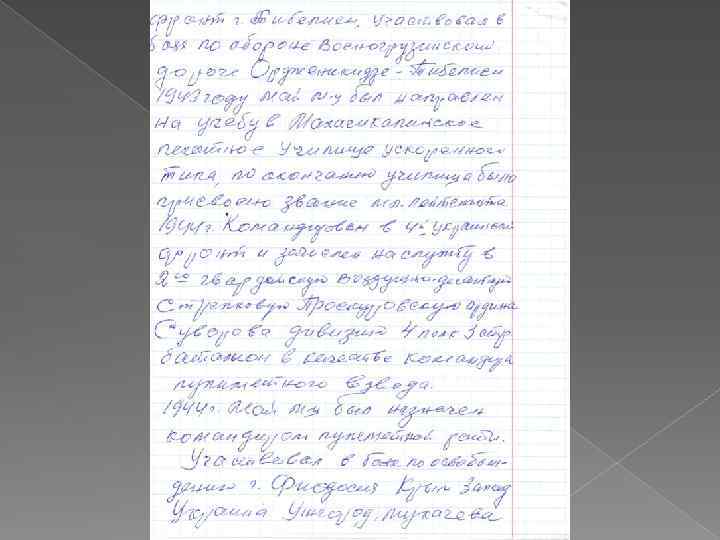 фронт г. Тибелиси, участвовал в
боях по обороне Военогрузинской
дороге Орджоникидзе-Тибелиси
1943 году май м-ц был направлен
на учебу в Махачкалинское
пехотное училище ускоренного
типа, по окончанию училища было
присвоено звание мл. лейтенанта
1944 г. Командирован в 4й украинский
фронт и зачислен на службу в
2ую гвардейскую воздушно-десантную
Стрелковую Проскуровскую ордена
Суворова дивизию 4 полк 3 стр.
батальон в качестве командира
пулеметного взвода.
1944 г. Май м-ц был назначен
командиром пулеметной роты.
Участвовал в боях по освобож-
дению г. Фиодосия Крым Запад
Украина Ужгород, Мукачева